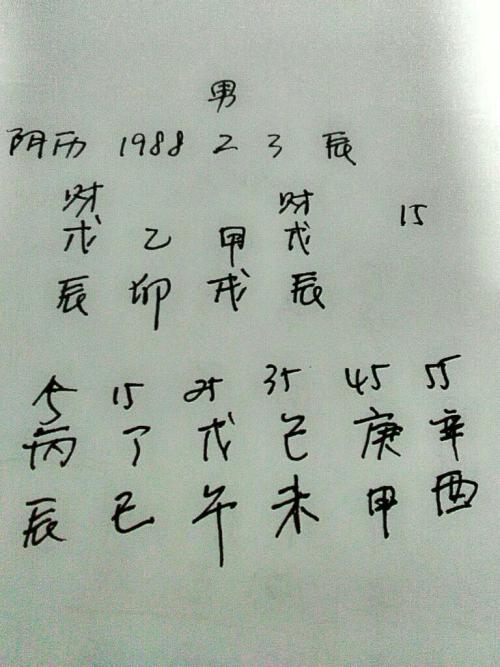 男
阴历 1988 2 3 辰
财 财
戊 乙 甲 戊 15
辰 卯 戌 辰
5 15 25 35 45 55
丙 丁 戊 己 庚 辛
辰 巳 午 未 申 酉